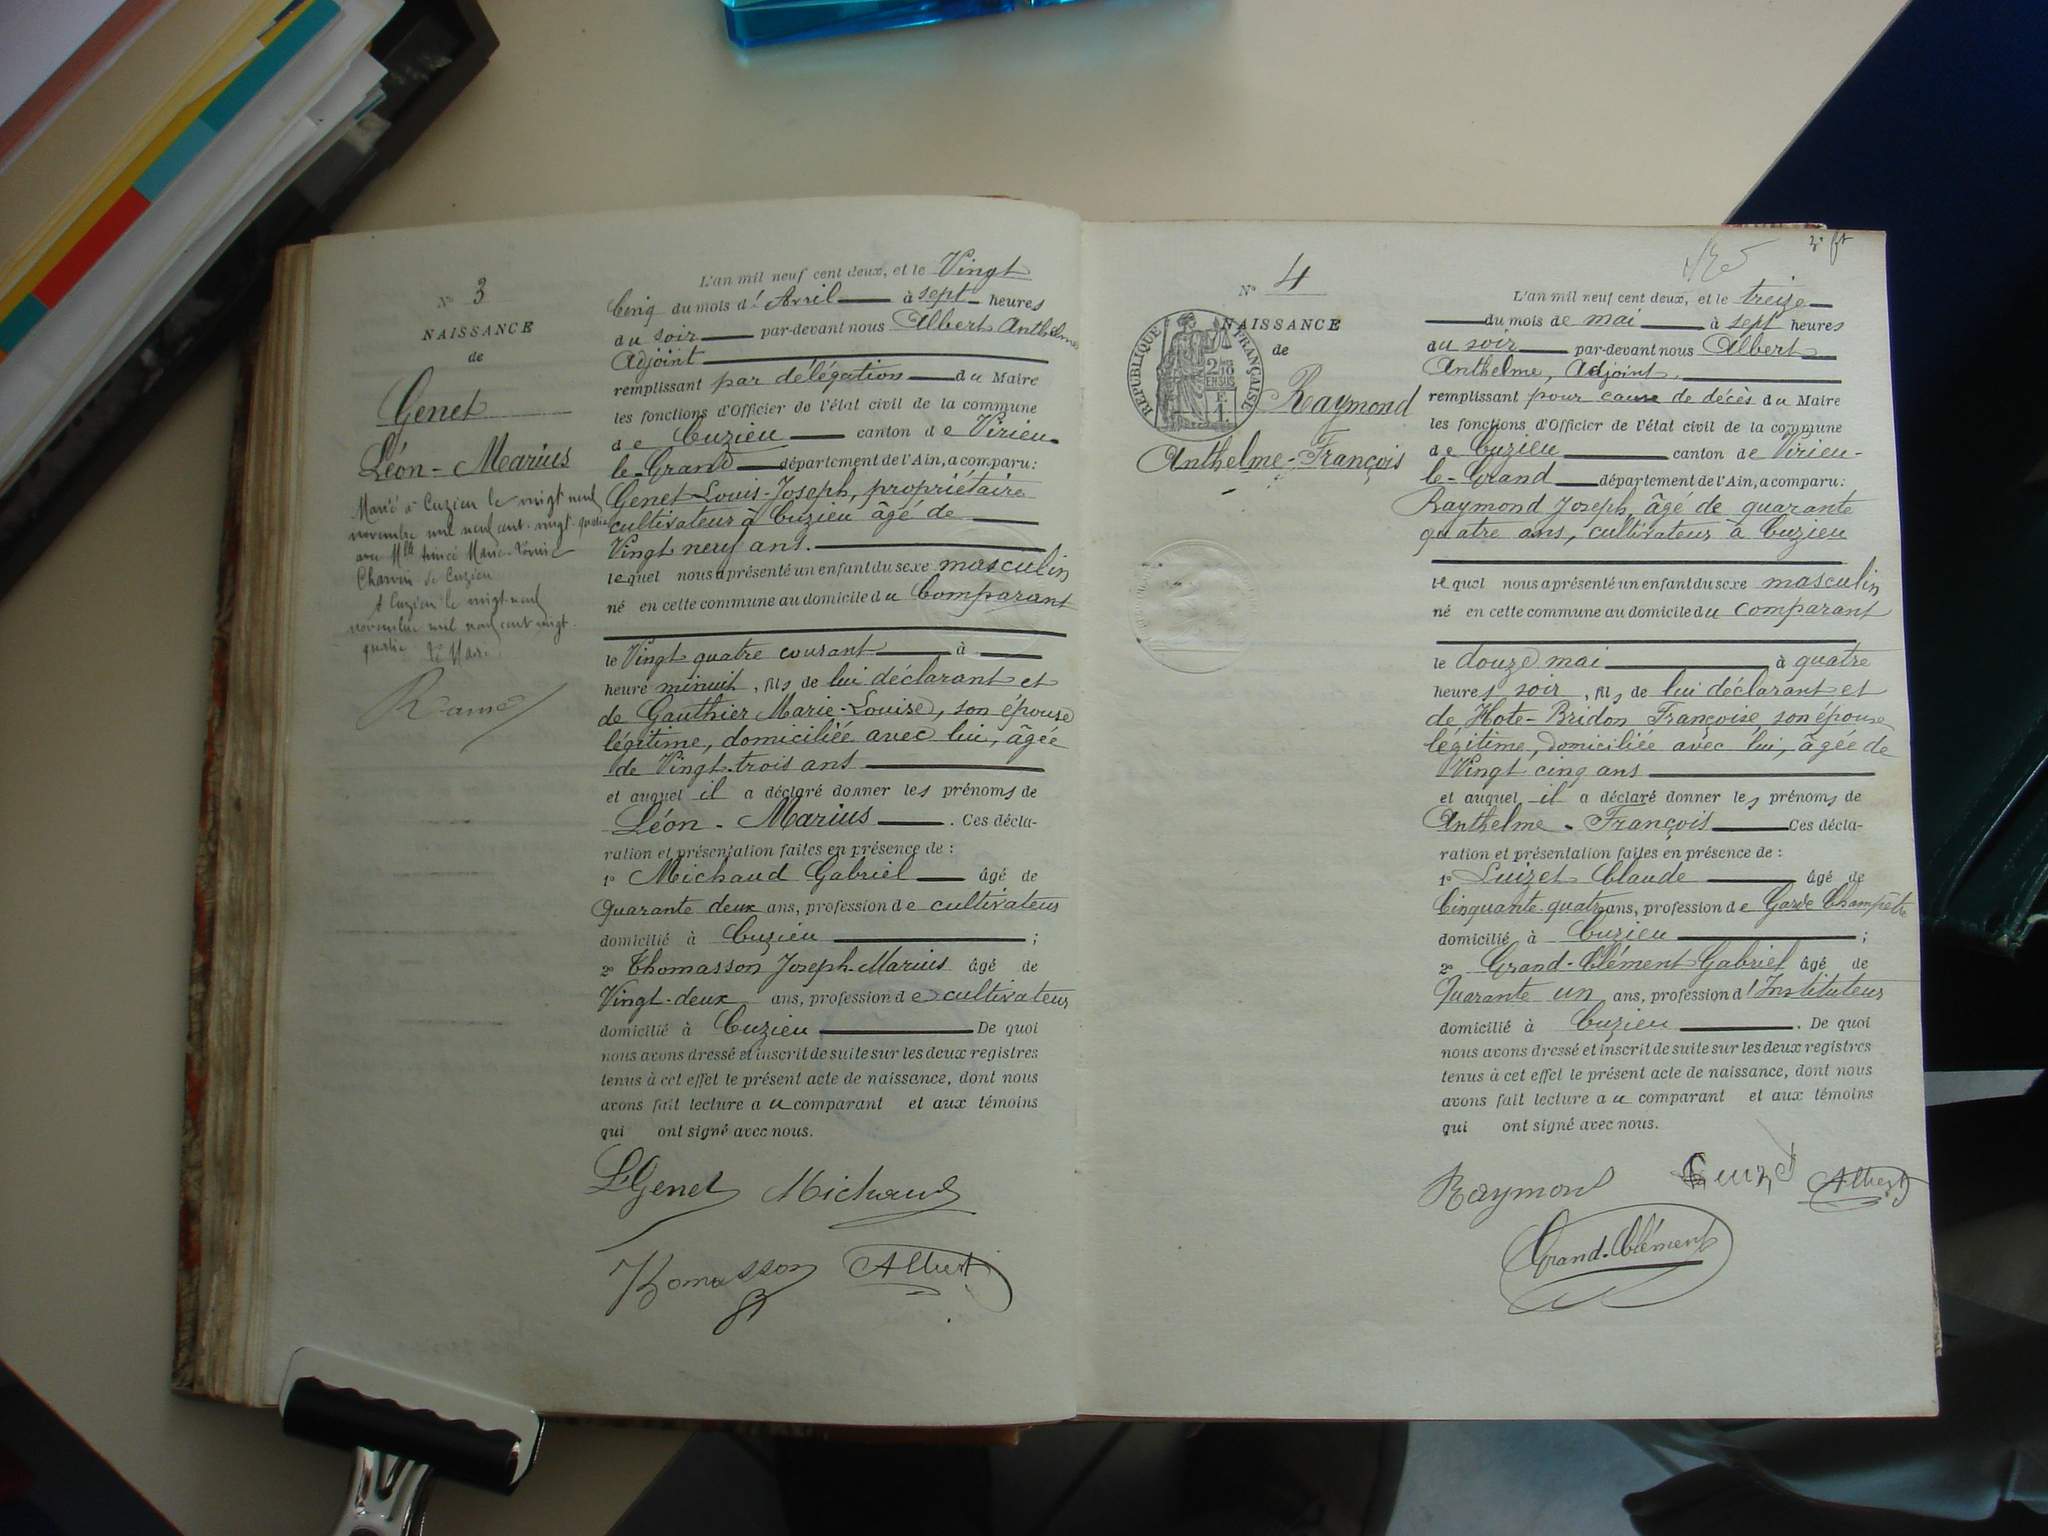 N° 3
NAISSANCE
de
Genet
Léon-Marius
Marié à Cuzieu le vingt neuf
novembre mil neuf cent vingt-quatre
avec Mlle Marie-Louise
Charvin de Cuzieu
A Cuzieu le vingt-neuf
novembre mil neuf cent vingt-
quatre Le Maire
L'an mil neuf cent deux, et le Vingt
Cinq du mois d'Avril à sept heures
du soir par-devant nous Albert Anthelme
Adjoint
remplissant par délégation du Maire
les fonctions d'Officier de l'état civil de la commune
de Cuzieu canton de Virieu-
le-Grand département de l'Ain, a comparu:
Genet Louis-Joseph, propriétaire
cultivateur à Cuzieu âgé de
Vingt neuf ans.
lequel nous a présenté un enfant du sexe masculin
né en cette commune au domicile du Comparant
le Vingt quatre courant à
heure minuit, fils de lui déclarant et
de Gauthier Marie-Louise, son épouse
légitime, domiciliée avec lui, âgée
de Vingt-trois ans
et auquel il a déclaré donner les prénoms de
Léon-Marius. Ces décla-
ration et présentation faites en présence de :
1° Michaud Gabriel âgé de
Quarante deux ans, profession de cultivateur
domicilié à Cuzieu ;
2° Thomasson Joseph-Marius âgé de
Vingt-deux ans, profession de cultivateur
domicilié à Cuzieu De quoi
nous avons dressé et inscrit de suite sur les deux registres
tenus à cet effet le présent acte de naissance, dont nous
avons fait lecture au comparant et aux témoins
qui ont signé avec nous.
LGenet Michaud
Thomasson Albert
N° 4
NAISSANCE
de
RÉPUBLIQUE FRANÇAISE
2/10 EN SUS
F. 1
Raymond
Anthelme-François
L'an mil neuf cent deux, et le treize
du mois de mai à sept heures
du soir par-devant nous Albert
Anthelme, Adjoint,
remplissant pour cause de décès du Maire
les fonctions d'Officier de l'état civil de la commune
de Cuzieu canton de Virieu-
le-Grand département de l'Ain, a comparu:
Raymond Joseph, âgé de quarante
quatre ans, cultivateur à Cuzieu
lequel nous a présenté un enfant du sexe masculin
né en cette commune au domicile du comparant
le douze mai à quatre
heures soir, fils de lui déclarant et
de Hote-Bridon Françoise, son épouse
légitime, domiciliée avec lui, âgée de
Vingt cinq ans
et auquel il a déclaré donner les prénoms de
Anthelme-François Ces décla-
ration et présentation faites en présence de :
1° Luizet Claude âgé de
Cinquante-quatre ans, profession de Garde Champêtre
domicilié à Cuzieu ;
2° Grand-Clément Gabriel âgé de
Quarante un ans, profession d'Instituteur
domicilié à Cuzieu. De quoi
nous avons dressé et inscrit de suite sur les deux registres
tenus à cet effet le présent acte de naissance, dont nous
avons fait lecture au comparant et aux témoins
qui ont signé avec nous.
Raymond Luizet Albert
Grand-Clément